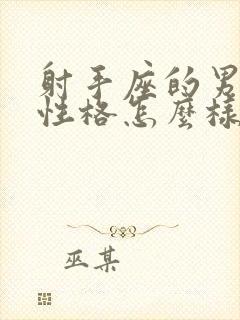 射手座的男
性格怎麼樣
巫某